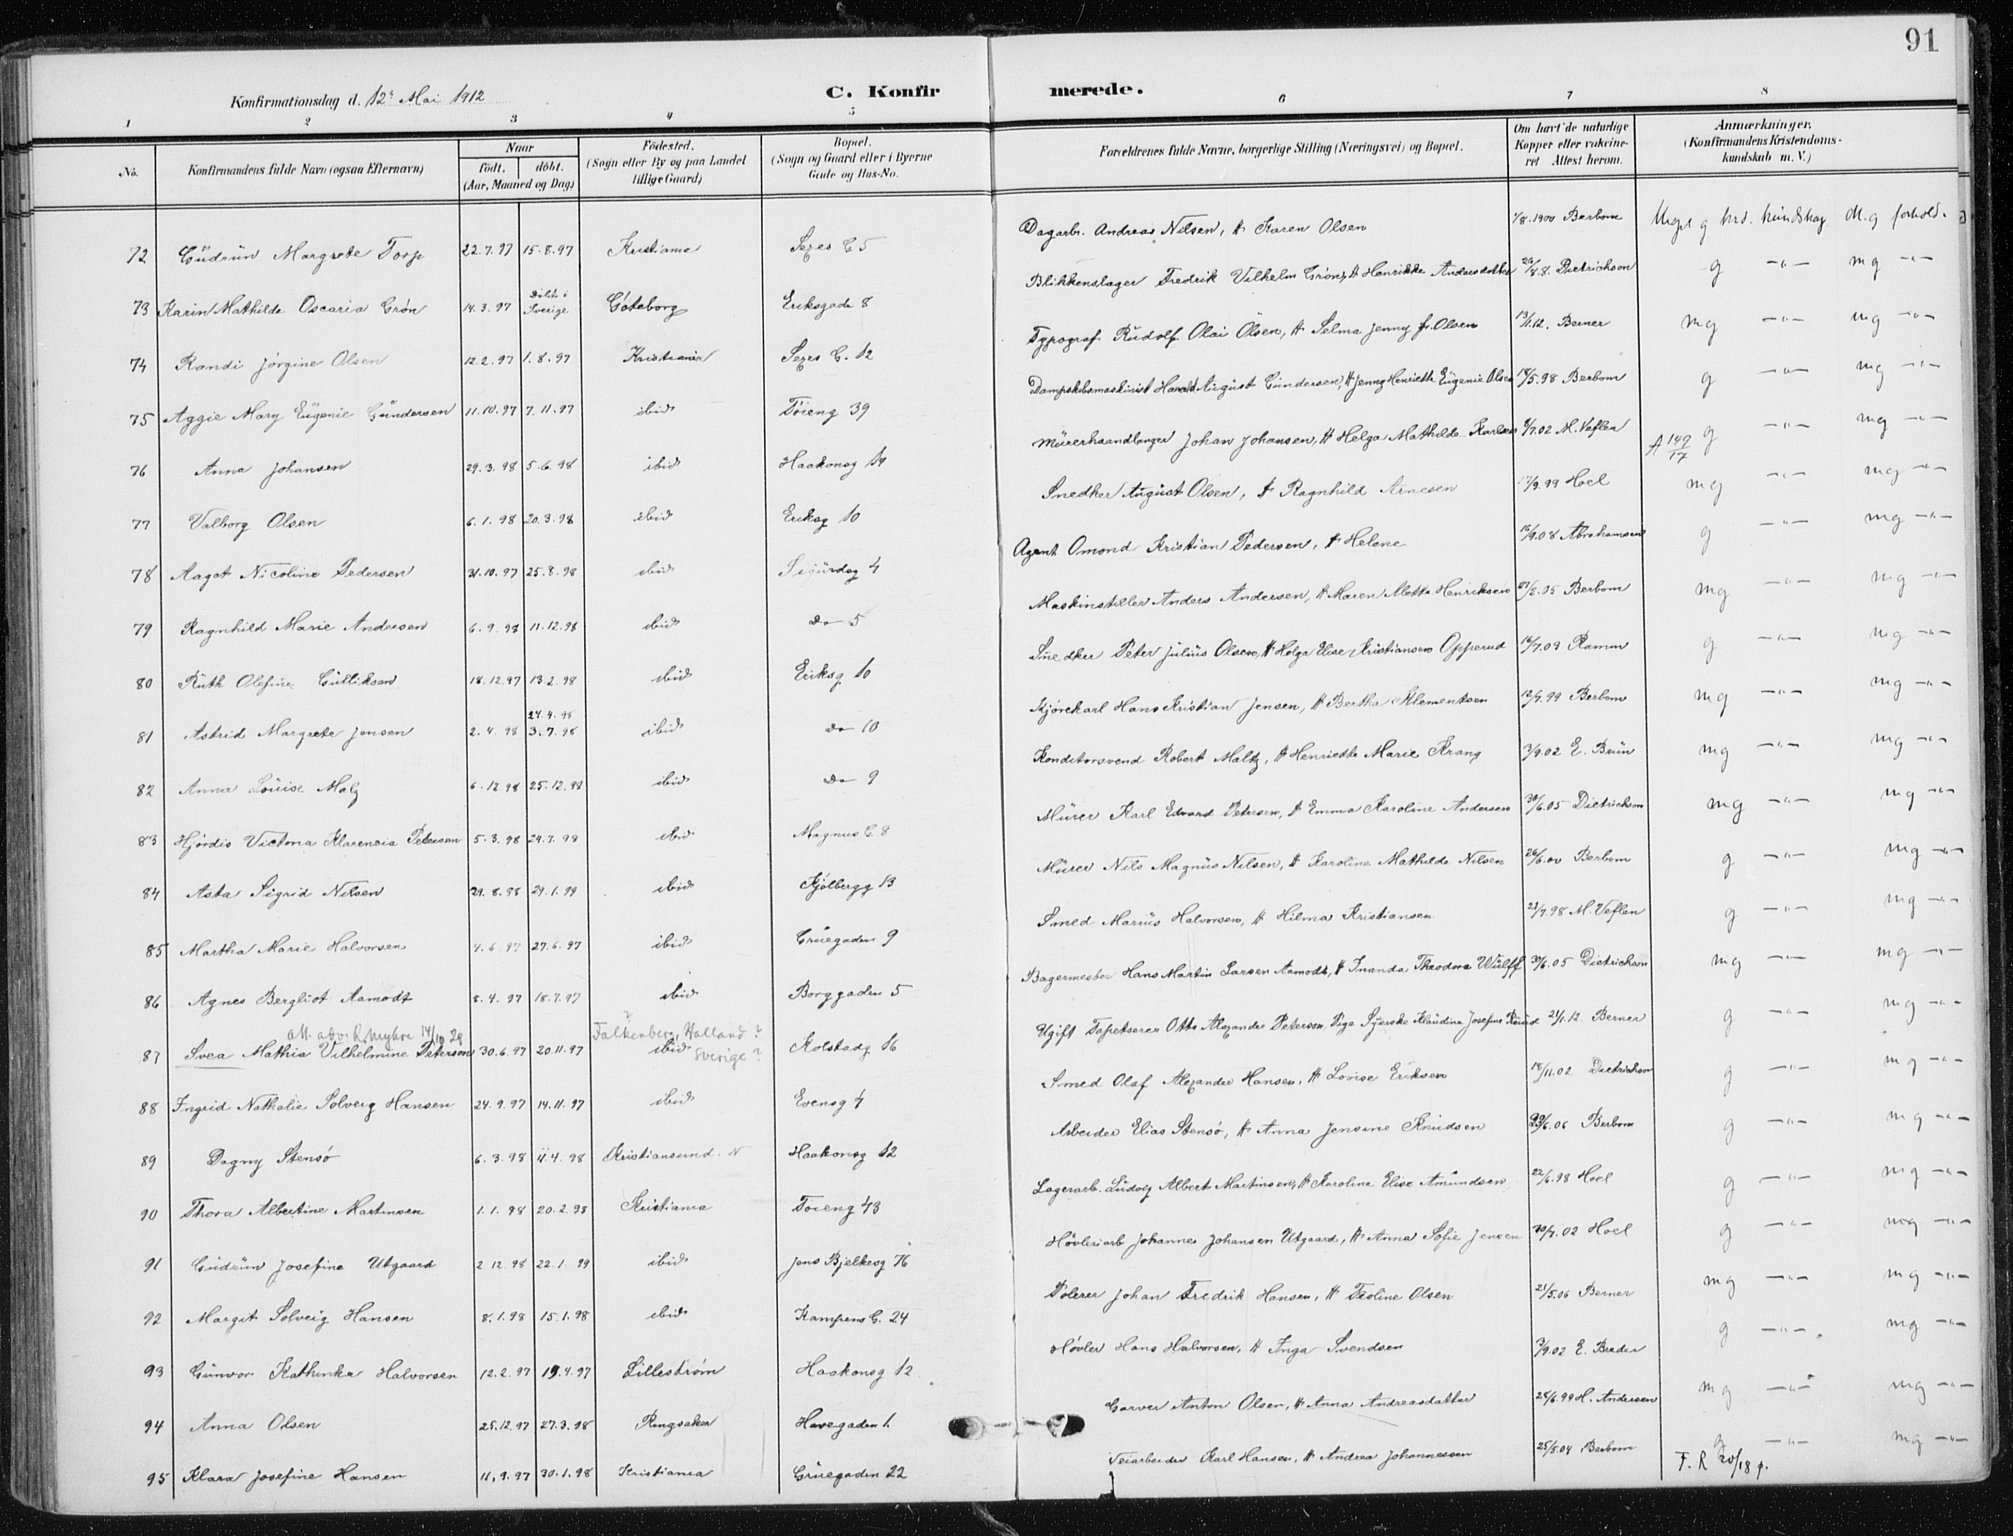 91
Konfirmationsdag d. 12te Mai 1912 C. Konfirmerede.
1 2 3 4 5 6 7 8
No. Konfirmandens fulde Navn (ogsaa Efternavn) Naar født. døbt. (Aar, Maaned og Dag) Fødested. (Sogn eller By og paa Landet tillige Gaard) Bopæl. (Sogn og Gaard eller i Byerne Gade og Hus-No. Forældrenes fulde Navne, borgerlige Stilling (Næringsvei) og Bopæl. Om havt de naturlige Kopper eller vaccineret Attest herom. Anmærkninger. (Konfirmandens Kristendomskundskab m. V.)
72 Gudrun Margrete Torp 22.7.97 15.8.97 Kristiania Sexes G 5 Dagarb. Andreas Nilsen, H Karen Olsen 1/8.1900 Berbom Meget g krd. kundskap. M.g forhold.
73 Karin Mathilde Oscaria Grøn 14.3.97 Døbt i Sverige Gøteborg Eriksgade 8 Blikkenslager Fredrik Vilhelm Grøn, H Henrikke Andersdatter Dietrichson g -"- mg -"-
74 Randi Jørgine Olsen 12.2.97 1.8.97 Kristiania Sexes G. 12 Typograf Rudolf Olai Olsen, H Selma Jenny f. Olsen 13/1.12. Berner mg -"- mg -"-
75 Aggie Mary Eugenie Gundersen 11.10.97 7.11.97 ibid Tøieng 39 Dampskibsmaskinist Harald August Gundersen, H Jenny Henriette Eugenie Olsen 18/5.98 Berbom g -"- mg -"-
76 Anna Johansen 29.3.98 5.6.98 ibid Haakonsg 14 Murerhaandlanger Johan Johansen, H Helga Mathilde Karlsen 8/7.02 M. Veflen A 149/17 g -"- mg -"-
77 Valborg Olsen 6.1.98 20.3.98 ibid Eriksg 10 Snedker August Olsen, H Ragnhild Arnesen /9.99 Hoel mg -"- mg -"-
78 Aagot Nicoline Pedersen 31.10.97 25.8.98 ibid Sigurdsg 4 Agent Omond Kristian Pedersen, H Helene 16/9.08 Abrahamsen g -"- mg -"-
79 Ragnhild Marie Andersen 6.9.98 11.12.98 ibid do 5 Maskinstiller Anders Andersen, H Maren Mette Henriksen 27/2.05 Berbom mg -"- mg -"-
80 Ruth Olefine Gulliksen 18.12.97 13.2.98 ibid Eriksg 10 Snedker Peter Julius Olsen, H Helga Elise Kristiansen Opperud 16/7.09 Ramm g -"- mg -"-
81 Astrid Margrete Jensen 2.4.98 24.4.98 3.7.98 ibid do 10 Kjørekarl Hans Kristian Jensen, H Bertha Klementsen 12/9.99 Berbom mg -"- mg -"-
82 Anna Louise Malz 6.12.98 25.12.98 ibid do 9 Konditorsvend Robert Maltz, H Henriette Marie Krang 3/9.02 E. Beün mg -"- mg -"-
83 Hjørdis Victoria Klarencia Petersen 5.3.98 29.7.99 ibid Magnus G. 8 Murer Karl Edvard Petersen, H Emma Karoline Andersen 30/6.05 Dietrichson mg -"- mg -"-
84 Asta Sigrid Nilsen 29.8.98 29.1.99 ibid Kjølbergg 13 Murer Nils Magnus Nilsen, H Karoline Mathilde Nilsen 26/6.00 Berbom g -"- mg -"-
85 Martha Marie Halvorsen 4.6.97 27.6.97 ibid Gruegaden 9 Smed Marius Halvorsen, H Hilma Kristiansen 21/7.98 M. Veflen g -"- mg -"-
86 Agnes Bergliot Aamodt 8.4.97 18.7.97 ibid Borggaden 5 Bagermester Hans Martin Larsen Aamodt, H Inanda Theodora Wulff 30/6.05 Dietrichson mg -"- mg -"-
att. adv. R. Myhre 14/10 29 Falkenberg, Halland? Sverige?
87 Svea Mathia Vilhelmine Peterson 30.6.97 20.11.97 ibid Kolstadg 16 Ugift Tapetserer Otto Alexander Peterson. Pige Syerske Klaudine Josefine 21/1.12 Berner g -"- mg -"-
88 Ingrid Nathalie Solveig Hansen 24.9.97 14.11.97 ibid Evensg 4 Smed Olaf Alexander Hansen, H Lovise Eriksen 18/11.02 Dietrichson g -"- mg -"-
89 Dagny Stensø 6.3.98 11.4.98 Kristiansund. N Haakonsg 12 Arbeider Elias Stensø, H Anna Jensine Knudsen 23/6.06 Berbom g -"- mg -"-
90 Thora Albertine Martinsen 1.1.98 20.2.98 Kristiania Tøieng 43 Lagerarb. Ludvig Albert Martinsen, H Karoline Elise Amundsen 22/6.98 Hoel g -"- mg -"-
91 Gudrun Josefine Utgaard 2.12.98 22.1.99 ibid Jens Bjelkesg 76 Høvleriarb Johannes Johansen Utgaard, H Anna Sofie Jensen 30/7.02 Hoel g -"- mg -"-
92 Margit Solveig Hansen 8.1.98 15.1.98 ibid Kampens G. 24 Polerer Johan Fredrik Hansen, H Teoline Olsen 21/5.06 Berner mg -"- mg -"-
93 Gunvor Kathinka Halvorsen 12.2.97 19.4.97 Lillestrøm Haakonsg 12 Høvler Hans Halvorsen, H Inga Svendsen 3/9.02 E. g -"- mg -"-
94 Anna Olsen 25.12.97 27.3.98 Ringsaker Havegaden 1. Garver Anton Olsen, H Anna Andreasdatter 28/6.99 H. Andersen mg -"- mg -"-
95 Klara Josefine Hansen 11.9.97 30.1.98 Kristiania Gruegaden 22 Veiarbeider Karl Hansen, H Andrea Johannessen 25/5.04 Berbom g -"- mg -"-
F. R 20/18 p.